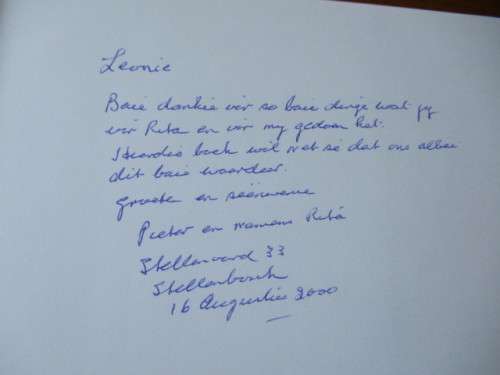 Leonie
Baie dankie vir so baie dinge wat jy
vir Rita en vir my gedoen het.
Hierdie boek wil net sê dat ons albei
dit baie waardeer.
Groete en seënwense
Pieter en namens Rita
Stellenoord 33
Stellenbosch
16 Augustus 2000